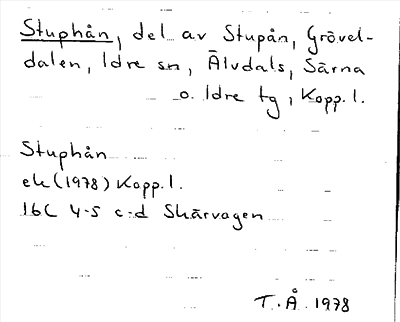 Stuphån, del av Stupån, Grövel-
dalen, Idre sn, Älvdals, Särna
o. Idre tg, Kopp. l.
Stuphån
ek (1978) Kopp. l.
16C 4-5 c-d Skärvagen
T. Å 1978